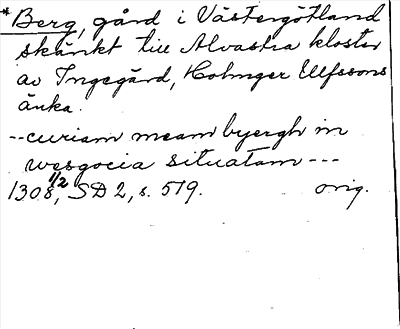 *Berg, gård i Västergötland
skänkt till Alvastra kloster
av Ingegärd, Holmger Ulfssons
änka.
--curiam meam byergh in
wesgocia situatam---
1308 1/2, SD 2, s. 579. orig.